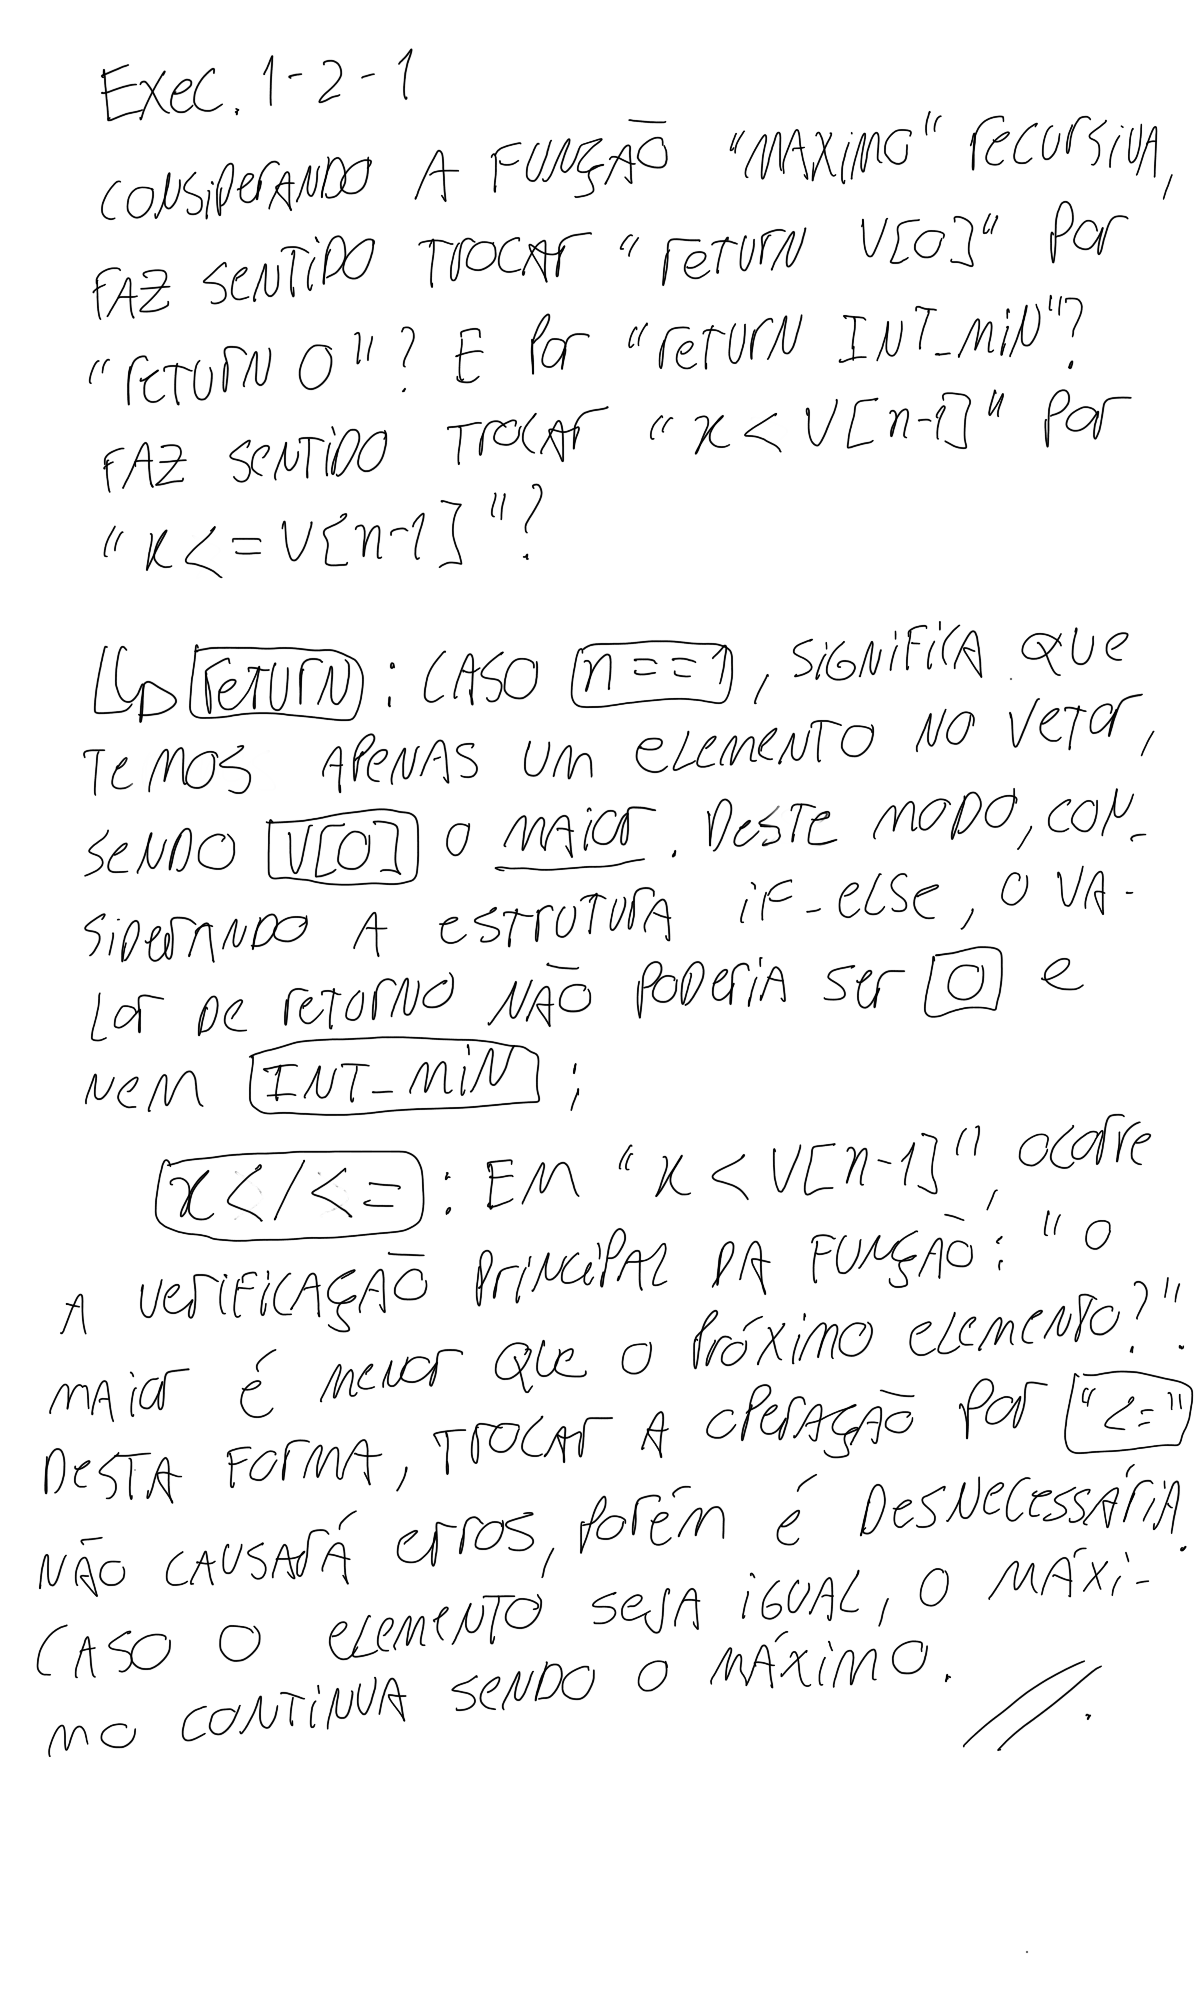 Exec. 1-2-1
CONSIDERANDO A FUNÇÃO "MAXIMO" recursiva,
FAZ SENTIDO TROCAR "return V[0]" por
"return 0"? E por "return INT_MIN"?
FAZ SENTIDO TROCAR "x < V[n-1]" por
"x <= V[n-1]"?
return: CASO n==1, SIGNIFICA QUE
TEMOS APENAS UM ELEMENTO NO VETOR,
SENDO V[0] O MAIOR. DESTE MODO, CON-
SIDERANDO A ESTRUTURA IF-ELSE, O VA-
LOR DE RETORNO NÃO PODERIA SER 0 e
NEM INT_MIN;
x</<=: EM "x < V[n-1]", OCORRE
A VERIFICAÇÃO PRINCIPAL DA FUNÇÃO: "O
MAIOR É MENOR QUE O PRÓXIMO ELEMENTO?".
DESTA FORMA, TROCAR A OPERAÇÃO POR "<="
NÃO CAUSARÁ ERROS, PORÉM É DESNECESSÁRIA.
CASO O ELEMENTO SEJA IGUAL, O MÁXI-
MO CONTINUA SENDO O MÁXIMO. //.